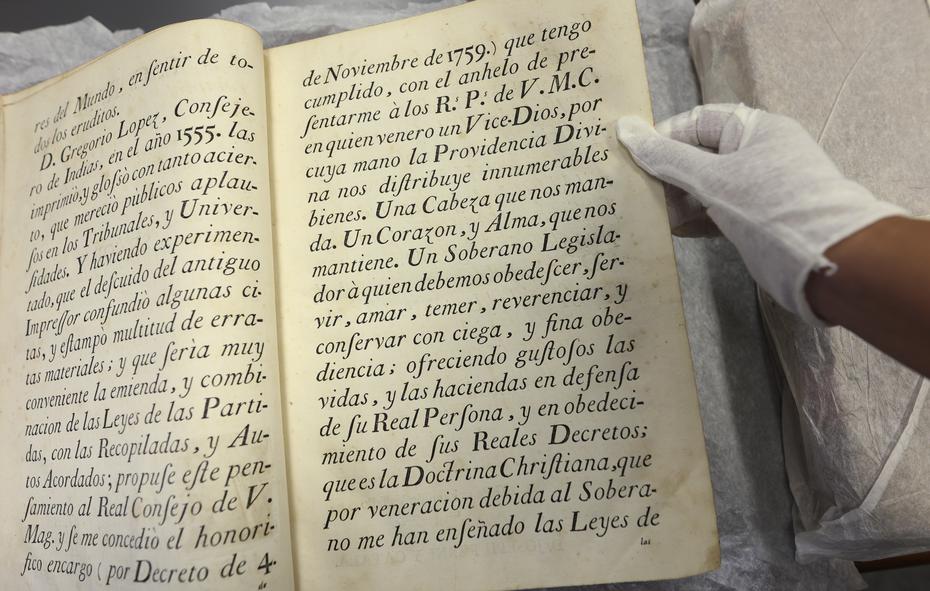 res del Mundo, en ſentir de to-
dos los eruditos.
D. Gregorio Lopez, Conſeje-
ro de Indias, en el año 1555. las
imprimiò, y gloſsò con tanto acier-
to, que mereciò pùblicos aplau-
ſos en los Tribunales, y Univer-
ſidades. Y haviendo experimen-
tado, que el deſcuido del antiguo
Impreſſor confundiò algunas ci-
tas, y eſtampò multitud de erra-
tas materiales; y que ſerìa muy
conveniente la emienda, y combi-
nacion de las Leyes de las Parti-
das, con las Recopiladas, y Au-
tos Acordados; propuſe eſte pen-
ſamiento al Real Conſejo de V.
Mag. y ſe me concediò el honori-
fico encargo (por Decreto de 4.
de
de Noviembre de 1759.) que tengo
cumplido, con el anhelo de pre-
ſentarme à los R.ˢ P.ˢ de V. M. C.
en quien venero un Vice-Dios, por
cuya mano la Providencia Divi-
na nos diſtribuye innumerables
bienes. Una Cabeza que nos man-
da. Un Corazon, y Alma, que nos
mantiene. Un Soberano Legisla-
dor à quien debemos obedeſcer, ſer-
vir, amar, temer, reverenciar, y
conſervar con ciega, y fina obe-
diencia; ofreciendo guſtoſos las
vidas, y las haciendas en defenſa
de ſu Real Perſona, y en obedeci-
miento de ſus Reales Decretos;
que es la Doctrina Chriſtiana, que
por veneracion debida al Sobera-
no me han enſeñado las Leyes de
las